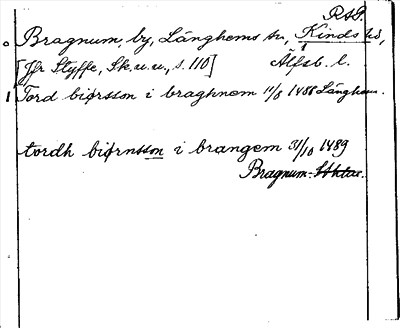 RAP.
Bragnum, by, Länghems sn, Kinds hd,
[Jfr Styffe, Sk. u. u., s. 110] Älfsb. l.
Tord biørsson i braghnem 11/8 1488 Länghem.
tordh biørnsson i brangem 31/10 1489
Bragnum